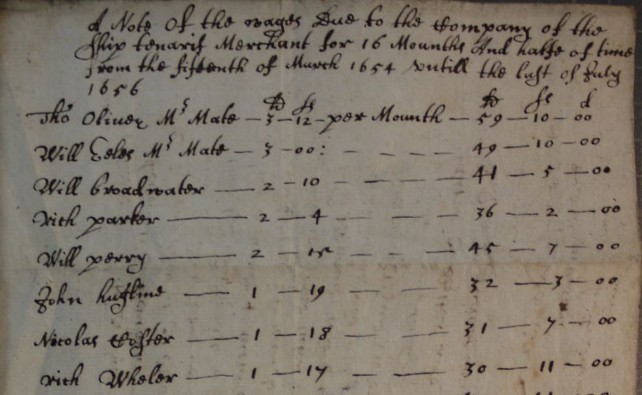 A Note Of the wages Due to the Company of the
Ship tenarif Merchant for 16 Mounths And halfe of time
from the fifteenth of March 1654 untill the last of July
1656
lb s lb s d
Tho Oliver Mr Mate — 3 — 12 — per Mounth — 59 — 10 — 00
Will Eeles Mr Mate — 3 — 00 : — — — 49 — 10 — 00
Will broadwater — 2 — 10 — — — 41 — 5 — 00
rich parker — 2 — 4 — — — 36 — 2 — 00
Will perry — 2 — 15 — — — 45 — 7 — 00
John — 1 — 19 — — — 32 — 3 — 00
Nicolas — 1 — 18 — — — 31 — 7 — 00
rich Wheler — 1 — 17 — — — 30 — 11 — 00